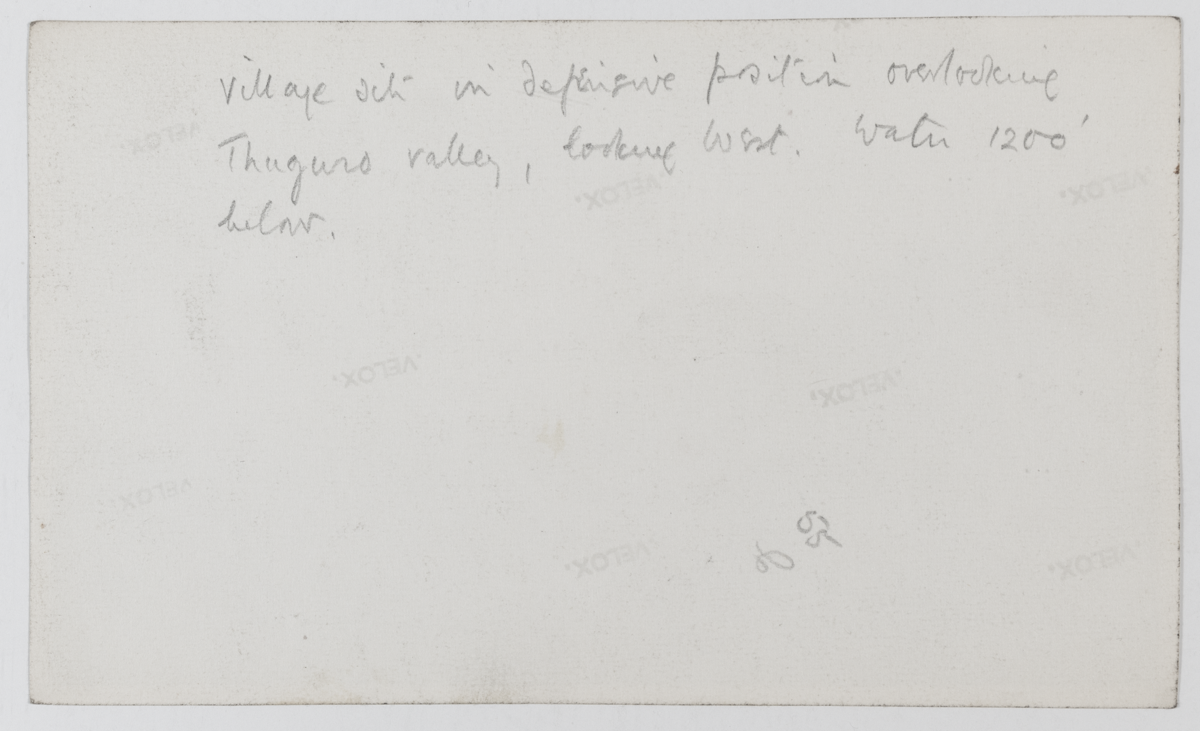 Village site in defensive position overlooking
Thuguro valley, looking West. Water 1200'
below.
VELOX.
VELOX.
VELOX.
VELOX.
VELOX.
VELOX.
VELOX.
VELOX.